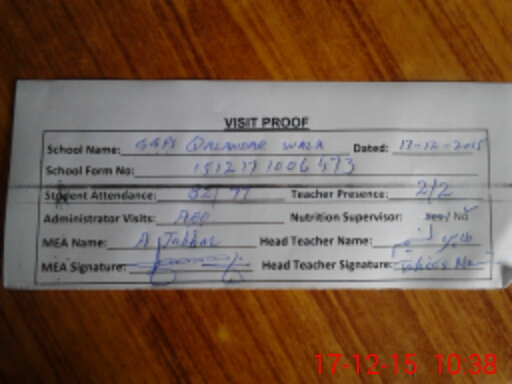 VISIT PROOF
School Name: GGPS QALANDAR WALA Dated: 17-12-2015
School Form No:
Student Attendance: Teacher Presence: 2/2
Administrator Visits: AEO Nutrition Supervisor: Yes / No
MEA Name: A Jabbar Head Teacher Name:
MEA Signature: Head Teacher Signature:
17-12-15 10:38